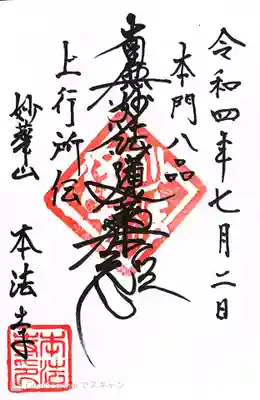 令和四年七月二日
本門八品
南無妙法蓮華経
上行所伝
妙華山 本法寺
でスキャン